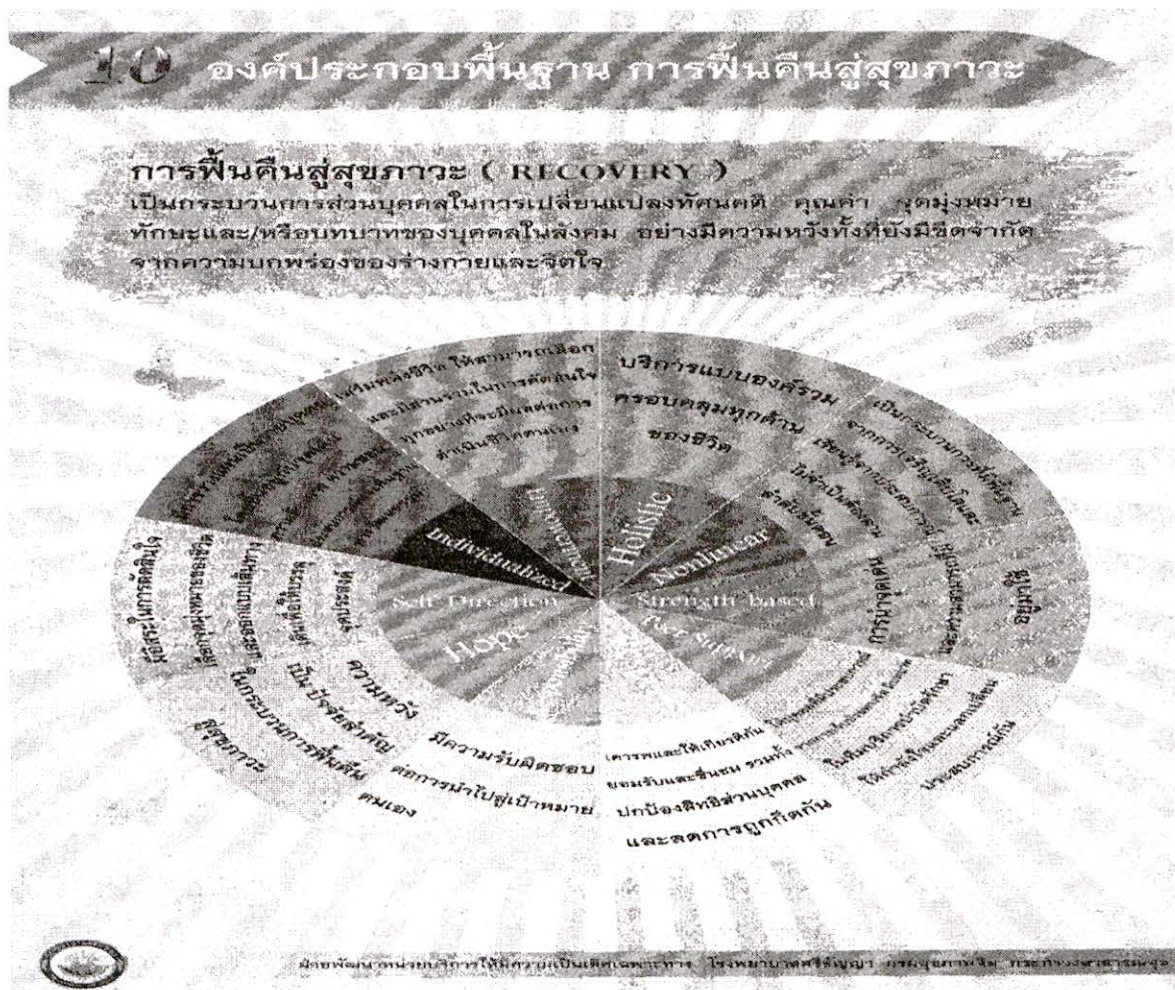 10 องค์ประกอบพื้นฐาน การฟื้นคืนสู่สุขภาวะ
การฟื้นคืนสู่สุขภาวะ ( RECOVERY )
เป็นกระบวนการส่วนบุคคลในการเปลี่ยนแปลงทัศนคติ คุณค่า จุดมุ่งหมาย
ทักษะและ/หรือบทบาทของบุคคลในสังคม อย่างมีความหวังทั้งที่ยังมีขีดจำกัด
จากความบกพร่องของร่างกายและจิตใจ
เสริมพลังชีวิต ให้สามารถเลือก
และมีส่วนร่วมในการตัดสินใจ
ทุกอย่างที่จะมีผลต่อการ
ดำเนินชีวิตตนเอง
บริการแบบองค์รวม
ครอบคลุมทุกด้าน
ของชีวิต
เป็นกระบวนการที่มีพื้นฐาน
จากการเจริญเติบโตและ
เรียนรู้จากประสบการณ์
ไม่จำเป็นต้องตาม
ลำดับขั้นตอน
Individualized
Empowerment
Holistic
Nonlinear
Self-Direction
Strength based
Hope
Peer support
การนำจุดเด่น
และความสามารถที่มี
อยู่มาใช้
มีอิสระในการตัดสินใจ
เลือกจุดมุ่งหมายของชีวิต
และออกแบบเส้นทาง
เดินเพื่อให้บรรลุ
จุดประสงค์
ความหวัง
เป็นปัจจัยสำคัญ
ในกระบวนการฟื้นคืน
สู่สุขภาวะ
มีความรับผิดชอบ
ต่อการนำไปสู่เป้าหมาย
ตนเอง
เคารพและให้เกียรติกัน
ยอมรับและชื่นชม รวมทั้ง
ปกป้องสิทธิส่วนบุคคล
และลดการถูกกีดกัน
ให้กำลังใจและแลกเปลี่ยน
ประสบการณ์กัน
ฝ่ายพัฒนาหน่วยบริการให้มีความเป็นเลิศเฉพาะทาง โรงพยาบาลศรีธัญญา กรมสุขภาพจิต กระทรวงสาธารณสุข